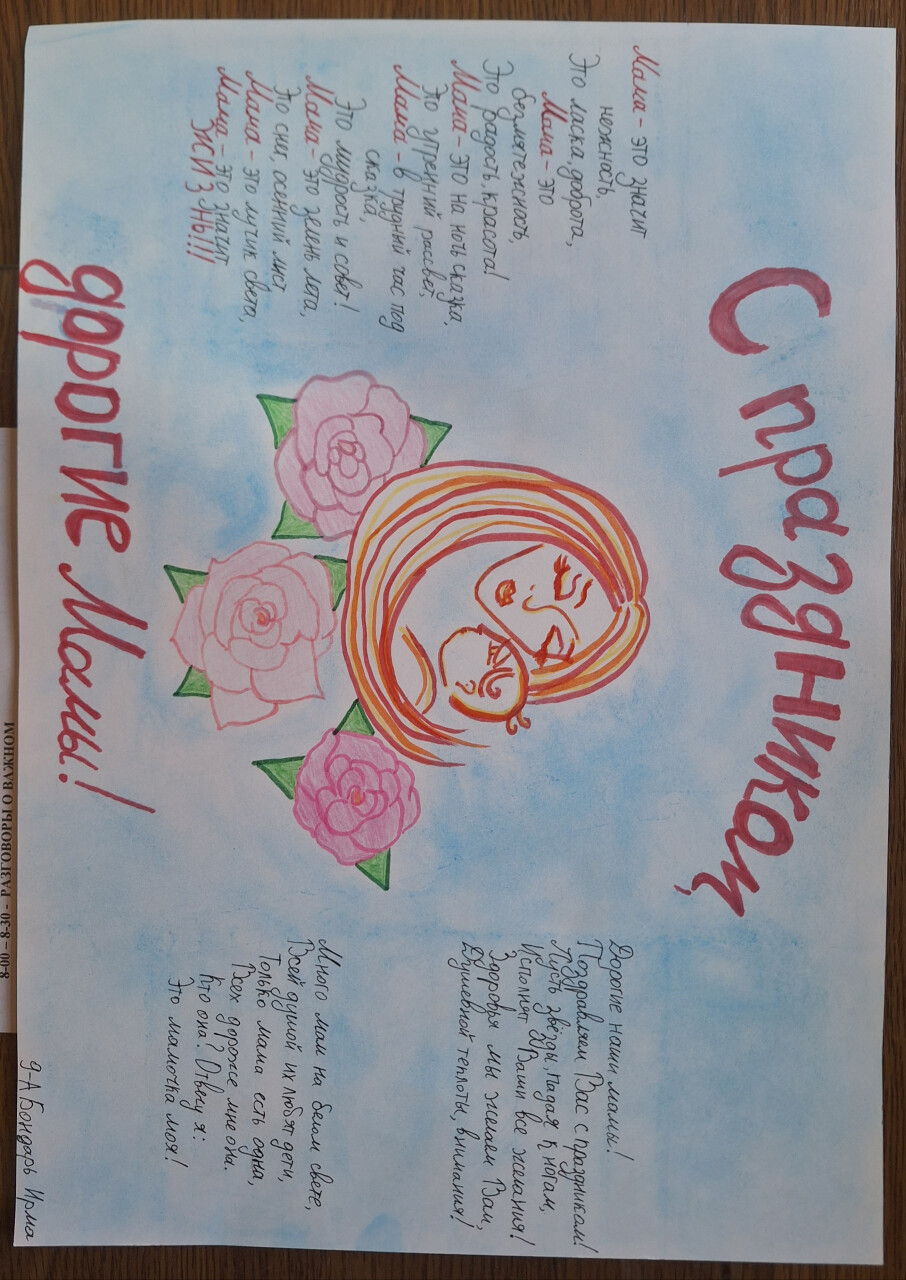 С праздником
Мама - это значит
нежность,
Это ласка, доброта,
Мама - это
безмятежность,
Это радость, красота!
Мама - это на ночь сказка,
Это утренний рассвет,
Мама - в трудный час под
сказка,
Это мудрость и совет!
Мама - это зелень лета,
Это снег, осенний лист,
Мама - это лучик света,
Мама - это значит
ЖИЗНЬ!!!
Дорогие наши мамы!
Поздравляем Вас с праздником!
Пусть звёзды, падая к ногам,
Исполнят Ваши все желания!
Здоровья мы желаем Вам,
Душевной теплоты, внимания!
Много мам на белом свете,
Всей душой их любят дети,
Только мама есть одна,
Всех дороже мне она.
Кто она? Отвечу я:
Это мамочка моя!
дорогие Мамы!
9-А Бондарь Ирма
8-00 – 8-30 - РАЗГОВОРЫ О ВАЖНОМ